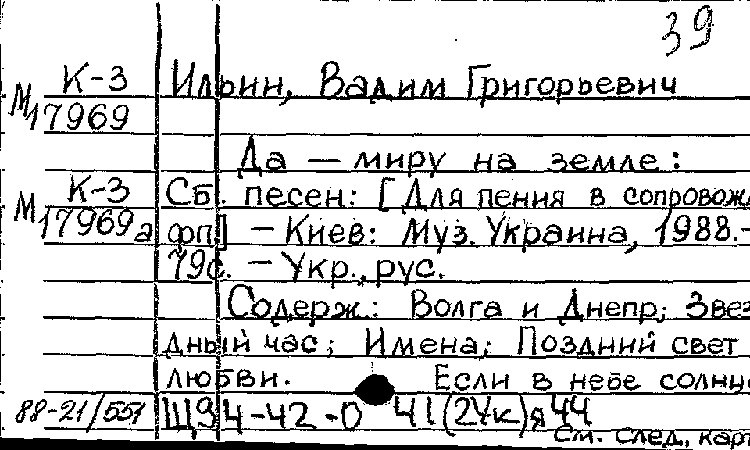 39
К-3 Ильин, Вадим Григорьевич
М17969
Да — миру на земле:
К-3 Сб. песен: [Для пения в сопровожд
М17969а фп.] — Киев: Муз. Украина, 1988.—
79с. — Укр., рус.
Содерж.: Волга и Днепр; Звез
дный час; Имена; Поздний свет
любви. Если в небе солнце
88-21/557 Щ94-42-0 41(2Ук)я44
См. след. карт